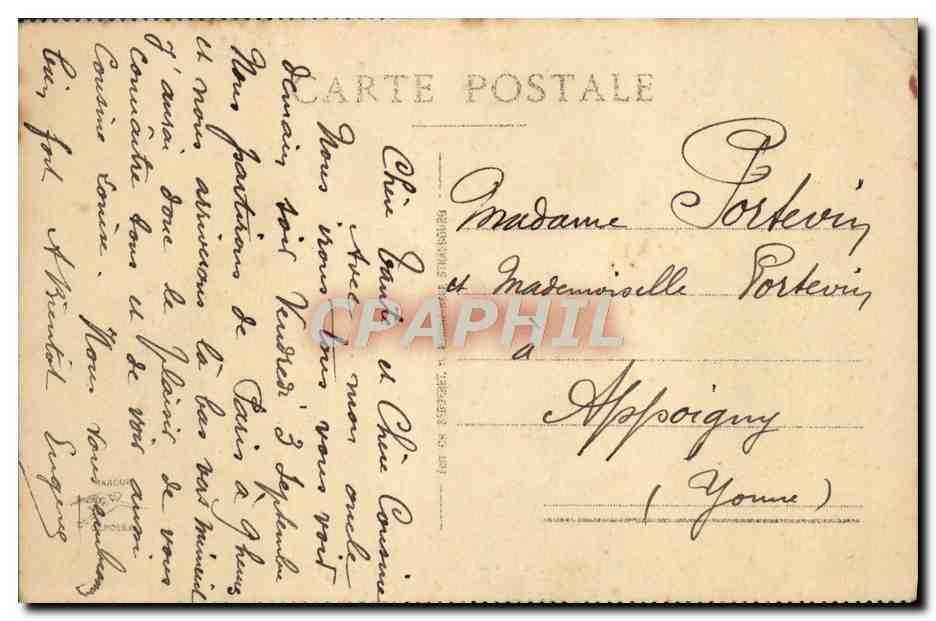 CARTE POSTALE
Chère Tante et Chère Cousine
Avec mon oncle
Nous irons tous vous voir
demain soir Vendredi 3 Septembre
Nous partirons de Paris à 9 heures
et nous arriverons là bas vers minuit
J'aurai donc le plaisir de vous
connaître tous et de voir aussi
Cousine Louise. Nous vous embrassons
bien fort A Bientôt Eugène
Madame Portevin
et Mademoiselle Portevin
à
Appoigny
(Yonne)
CPAPHIL